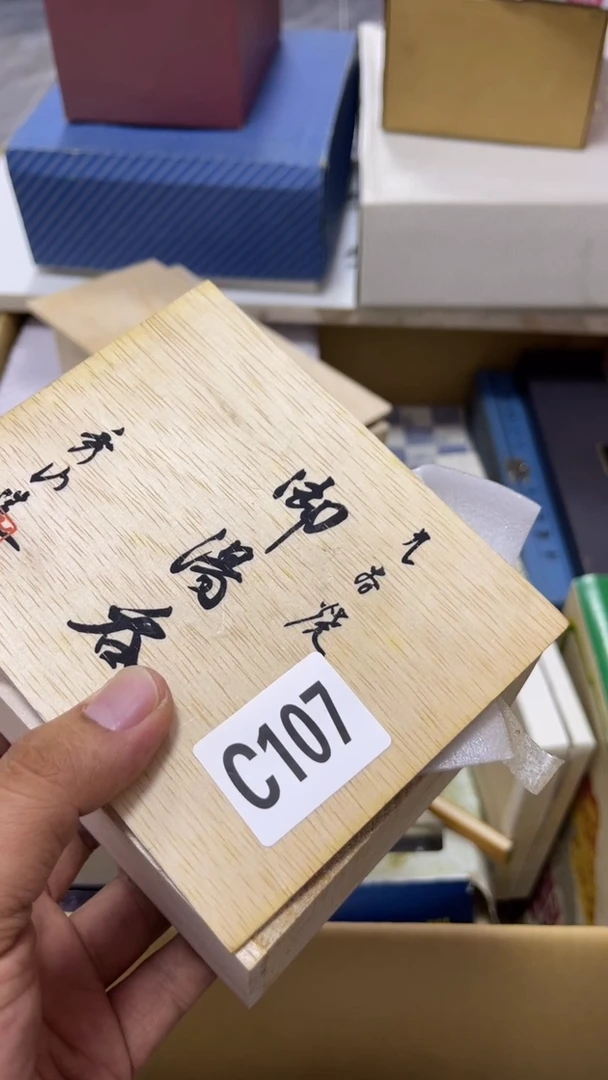 九谷焼
御湯呑
C107